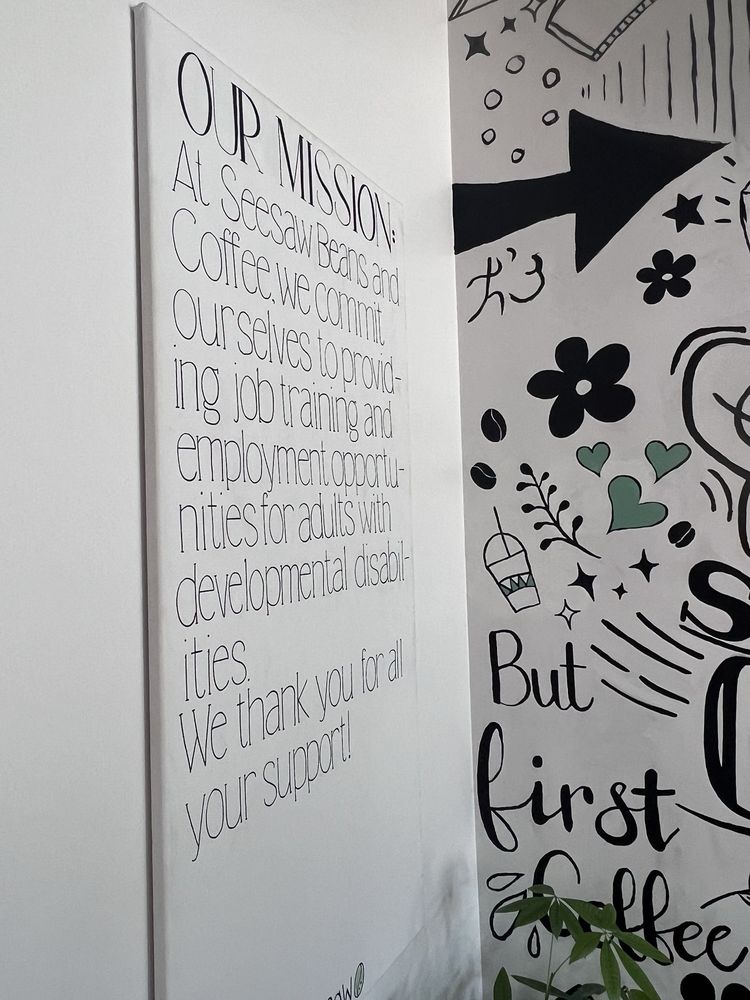 OUR MISSION:
At Seesaw Beans and
Coffee, we commit
ourselves to provid-
ing job training and
employment opportu-
nities for adults with
developmental disabil-
ities.
We thank you for all
your support!
But
first
Coffee